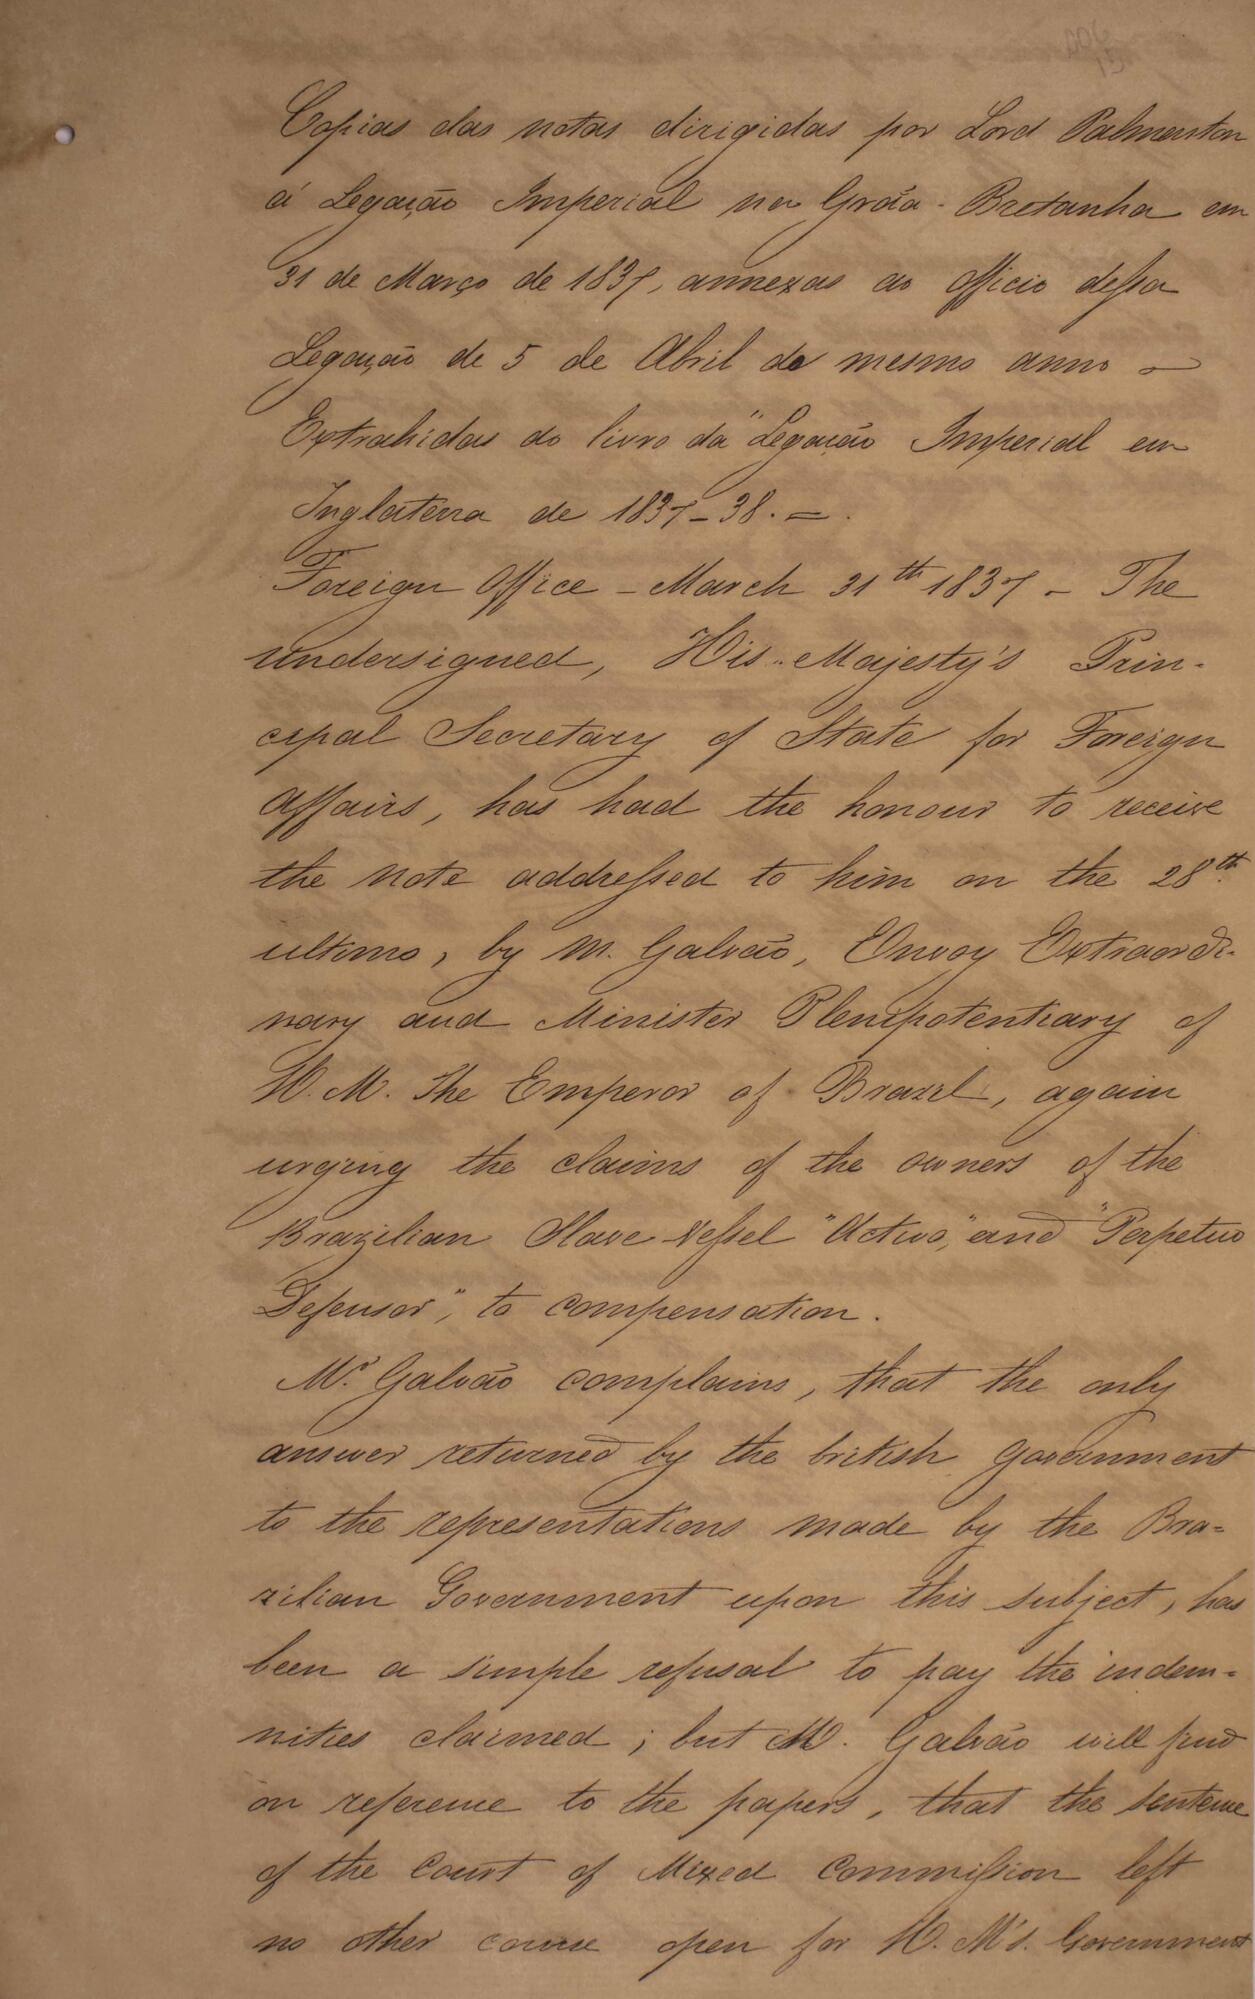 Copias das notas dirigidas por Lord Palmerston
á Legação Imperial na Grãa-Bretanha em
31 de Março de 1837, annexas ao officio dessa
Legação de 5 de Abril do mesmo anno –
Extrahidas do livro da "Legação Imperial em
Inglaterra de 1837-38. =.
Foreign Office - March 31th 1837 - The
undersigned, His Majesty's Prin-
cipal Secretary of State for Foreign
Affairs, has had the honour to receive
the note addressed to him on the 28th
ultimo, by M. Galvão, Envoy Extraordi-
nary and Minister Plenipotentiary of
H. M. The Emperor of Brazil, again
urging the claims of the owners of the
Brazilian Slave Vessel "Activo," and "Perpetuo
Defensor", to compensation.
Mr. Galvão complains, that the only
answer returned by the british Government
to the representations made by the Bra=
zilian Government upon this subject, has
been a simple refusal to pay the indem=
nities claimed; but M. Galvão will find
on reference to the papers, that the sentence
of the Court of Mixed Commission left
no other course open for H. M's. Government